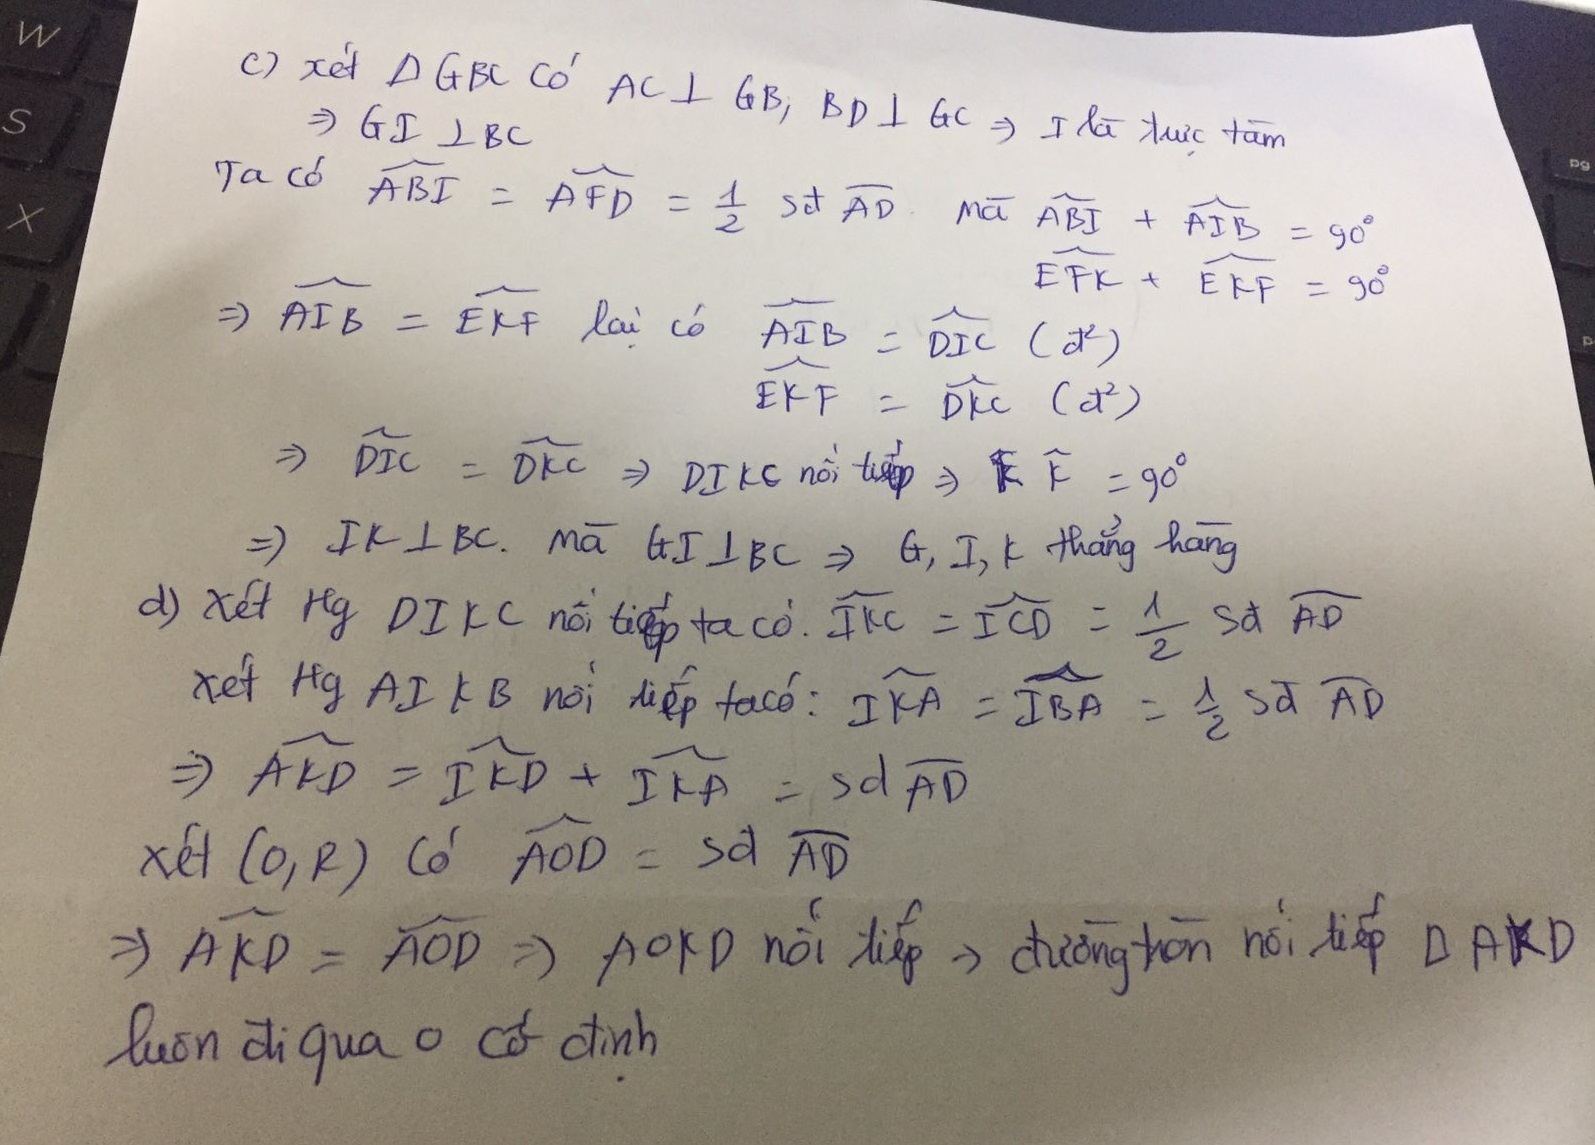 c) xét Δ GBC có AC ⊥ GB, BD ⊥ GC ⇒ I là trực tâm
⇒ GI ⊥ BC
Ta có \widehat{ABI} = \widehat{AFD} = 1/2 sđ \overline{AD}. mà \widehat{ABI} + \widehat{AIB} = 90°
\widehat{EFK} + \widehat{EKF} = 90°
⇒ \widehat{AIB} = \widehat{EKF} lại có \widehat{AIB} = \widehat{DIC} (đ²)
\widehat{EKF} = \widehat{DKC} (đ²)
⇒ \widehat{DIC} = \widehat{DKC} ⇒ DIKC nối tiếp ⇒ \widehat{K} = 90°
⇒ IK ⊥ BC. mà GI ⊥ BC ⇒ G, I, K thẳng hàng
d) xét Hg DIKC nối tiếp ta có. \widehat{IKC} = \widehat{ICD} = 1/2 sđ \overline{AD}
xét Hg AIKB nối tiếp ta có: \widehat{IKA} = \widehat{IBA} = 1/2 sđ \overline{AD}
⇒ \widehat{AKD} = \widehat{IKD} + \widehat{IKA} = sđ \overline{AD}
xét (O,R) có \widehat{AOD} = sđ \overline{AD}
⇒ \widehat{AKD} = \widehat{AOD} ⇒ AOKD nối tiếp ⇒ đường tròn nối tiếp Δ AKD
luôn đi qua O cố định
W
S
X
pg